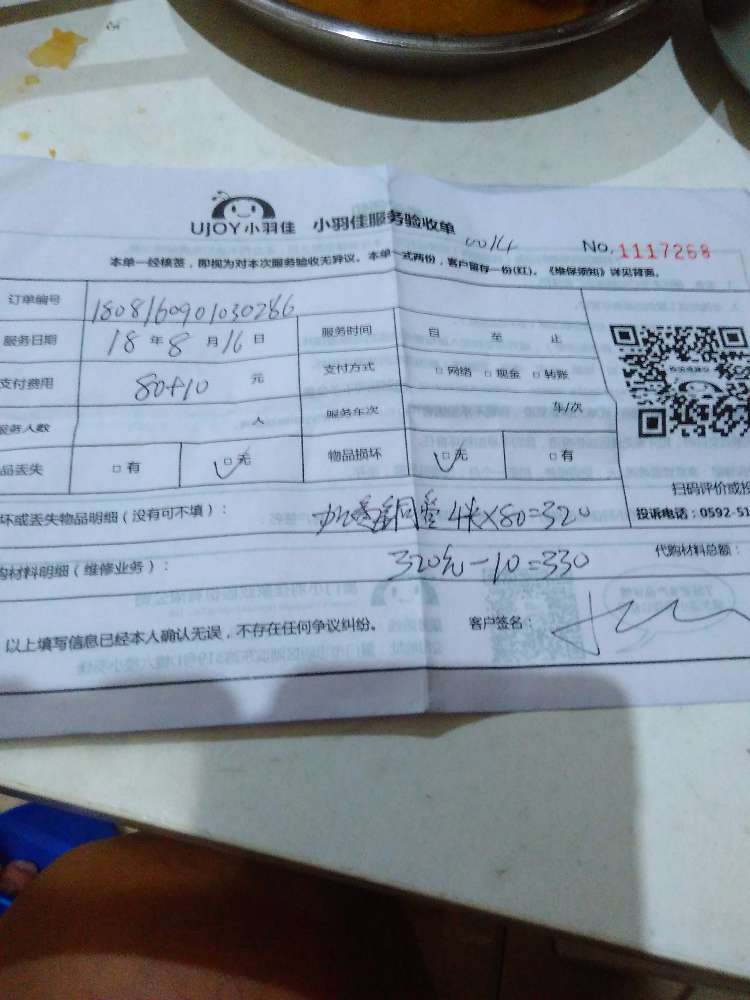 UJOY小羽佳 小羽佳服务验收单
0014
No.1117268
本单一经稿签，即视为对本次服务验收无异议。本单一式两份，客户留存一份(红)。《维保须知》详见背面。
订单编号 1808160901030286
服务日期 18 年 8 月 16 日 服务时间 自 至 止
支付费用 80+10 元 支付方式 □ 网络 □ 现金 □ 转账
服务人数 人 服务车次 车/次
品丢失 □ 有 □ 无 物品损坏 □ 无 □ 有
扫码评价或投
坏或丢失物品明细（没有可不填）： 加 铜管 4米×80=320
投诉电话：0592-51
购材料明细（维修业务）： 320元-10=330
代购材料总额：
以上填写信息已经本人确认无误，不存在任何争议纠纷。 客户签名：